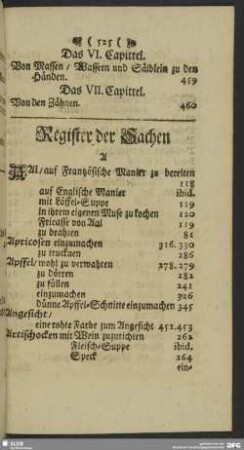 ( 525 (
Das VI. Capittel.
Von Massen / Wassern und Sälblein zu den
Händen. 459
Das VII. Capittel.
Von den Zähnen. 460
Register der Sachen
A
AAl / auf Französische Manier zu bereiten
118
auf Englische Manier ibid.
mit Löffel-Suppe 119
in ihrem eigenen Muse zu kochen 120
Fricasse von Aal 119
zu brahten 81
Apricosen einzumachen 316. 330
zu trucknen 286
Apffel / wohl zu verwahren 278. 279
zu dörren 282
zu füllen 241
einzumachen 326
dünne Apffel-Schnitte einzumachen 345
Angesicht /
eine rohte Farbe zum Angesicht 452. 453
Artischocken mit Wein zuzurichten 262
Fleisch-Suppe ibid.
Speck 264
ein-
SLUB